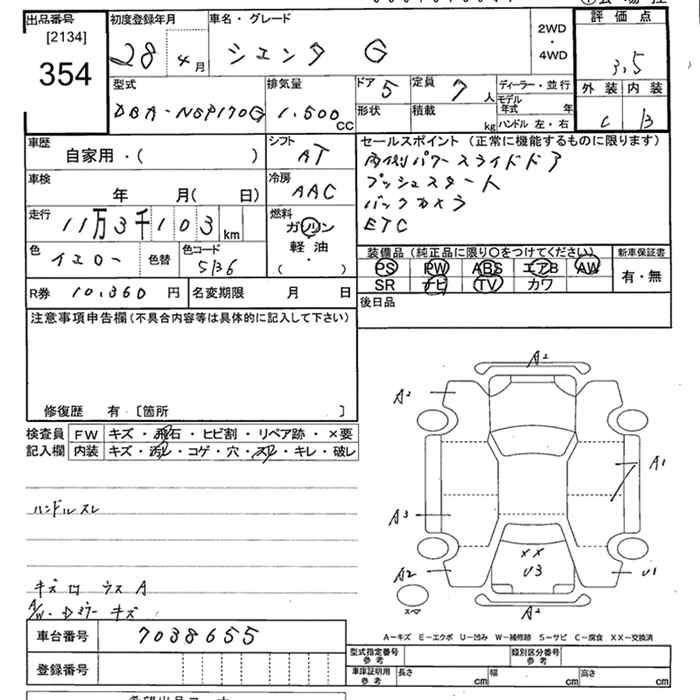 出品番号 初度登録年月 車名・グレード 2WD ・ 4WD 評価点
[2134]
354 28 4月 シエンタ G 3.5
型式 排気量 ドア 5 定員 7人 ディーラー・並行 外装 内装
DBA-NSP170G 1.500cc 形状 積載 kg モデル年式 年 C B
ハンドル 左・右
車歴 自家用・( ) シフト AT セールスポイント (正常に機能するものに限ります)
両側パワースライドドア
車検 年 月( 日) 冷房 AAC プッシュスタート
バックカメラ
走行 11万3千103km 燃料 ガソリン 軽油・ ( ) ETC
色 イエロー 色替 色コード 5B6 装備品 (純正品に限り○をつけてください) 新車保証書
PS PW ABS エアB AW 有・無
SR ナビ TV カワ
R券 10,360円 名変期限 月 日 後日品
注意事項申告欄(不具合内容等は具体的に記入して下さい)
修復歴 有・[箇所 ]
検査員 FW キズ・飛石・ヒビ割・リペア跡・×要
記入欄 内装 キズ・汚レ・コゲ・穴・スレ・キレ・破レ
ハンドルスレ
A2
A2
A1
A3
XX
U3
A2 U1
A2
スペア
A/W・Dミラーキズ
A－キズ E－エクボ U－凹み W－補修跡 S－サビ C－腐食 XX－交換済
車台番号 7038655
型式指定番号 参考 類別区分番号 参考
登録番号 車庫証明用 参考 長さ cm 幅 cm 高さ cm